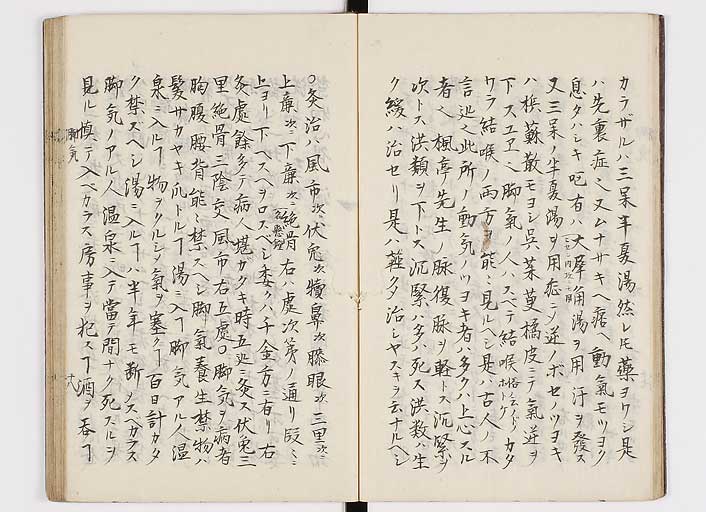 カラザルハ三呆半夏湯然レ𪜈薬ヨワシ是
ハ先裏症ニ又ムナサキヘ痞ヘ動氣モツヨク
息タハシキ有ハ大犀角湯ヲ用汗ヲ發ス
又三呆ノ半夏湯ヲ用悉ニテ逆ノボセノツヨキ
ハ模蘇散モヨシ呉茱萸橘皮ニテ氣逆ヲ
下スユヱ也脚氣ノ人ハスベテ結喉カタ
ワラ結喉ノ両方ヲ能ミ見ルヘシ是ハ古人ノ不
言処也此所ノ動気ノツヨキ者ハ多クハ上心スル
者也楓亭先生ノ脉復脉ヲ軽トス沉緊ヲ
次トス洪類ヲ下トス沉緊ハ多ハ死ス洪数ハ生
ク緩ハ治セリ是ハ輕ク治シヤスキヲ云ナルヘシ
○灸治ハ風市次ニ伏兎次犢鼻次膝眼次三里次ニ
上廉次ニ下廉次ニ絶骨右八處次第ノ通リ段ミニ
上ヨリ下ヘスヘヲロスベシ委クハ千金方ニ有リ右
灸處餘多テ病人堪ガタキ時五処ニ灸ス伏兎三
里絶骨三陰交風市右五處○脚気ヲ病者
胸腹腰背能ミ禁スヘシ脚氣養生禁物ハ
髪サカヤキ爪トルヿ湯ニ入ヿ脚気アル人温
泉ニ入ルヿ物ヲクルシメ氣ヲ塞クヿ百日計カタ
ク禁スヘシ湯ニ入ルヿハ半年モ断ノスヘカラス
脚気ノアル人温泉ニ入テ當テ間ナク死スルヲ
見ル慎テ入ベカラス房事ヲ犯スヿ酒ヲ呑ヿ
脚気
十八